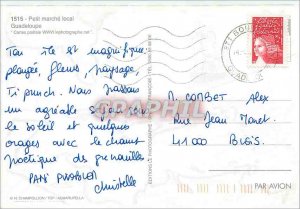 1515 - Petit marché local
Guadeloupe
" Cartes postale WWW.lephotographe.net "
Ton île est magnifique,
plages, fleurs, paysage,
Ti punch. Nous passons
un agréable séjour sous
le soleil et quelques
orages avec le chant
poétique de grenouilles
PAS PROBLEM
Christelle
M. CORBET Alex
Rue Jean Monet
41000 BLOIS
PAR AVION
CPAPHIL.com